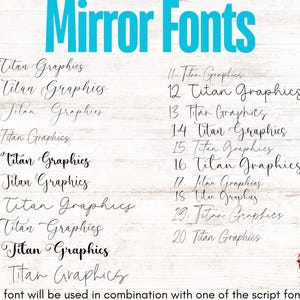 Mirror Fonts
Titan Graphics
Titan Graphics
Titan Graphics
Titan Graphics
Titan Graphics
Titan Graphics
Titan Graphics
Titan Graphics
Titan Graphics
Titan Graphics
11 Titan Graphics
12 Titan Graphics
13 Titan Graphics
14 Titan Graphics
15 Titan Graphics
16 Titan Graphics
17 Titan Graphics
18 Titan Graphics
19 Titan Graphics
20 Titan Graphics
font will be used in combination with one of the script fon